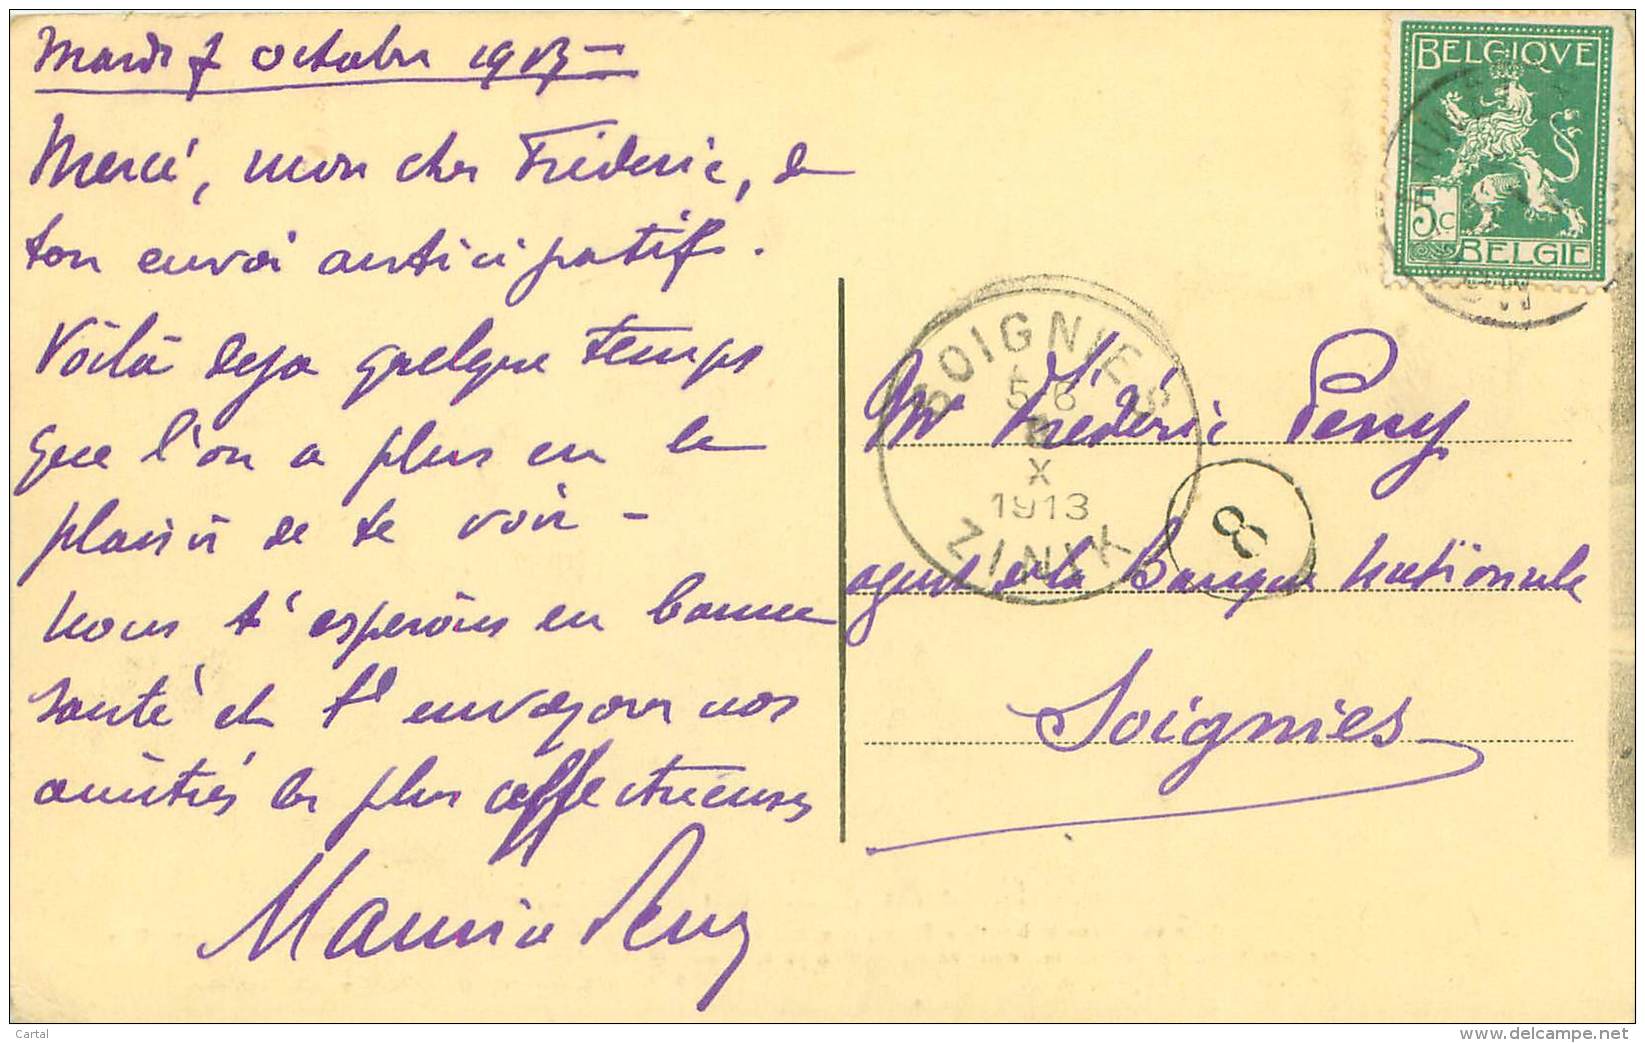 Mardi 7 octobre 1913 -
Merci, mon cher Fréderic, de
ton envoi anticipatif.
Voilà deja quelque temps
que l'on a plus eu le
plaisir de te voir -
Nous t'esperons en bonne
santé et t'envoyons nos
amitiés les plus affectueuses
Maurice
BELGIQVE
5c
BELGIE
SOIGNIES
5-6
X
1913
ZINIK
8
Mr Frédéric
agent de la Banque Nationale
Soignies
Cartal
www.delcampe.net